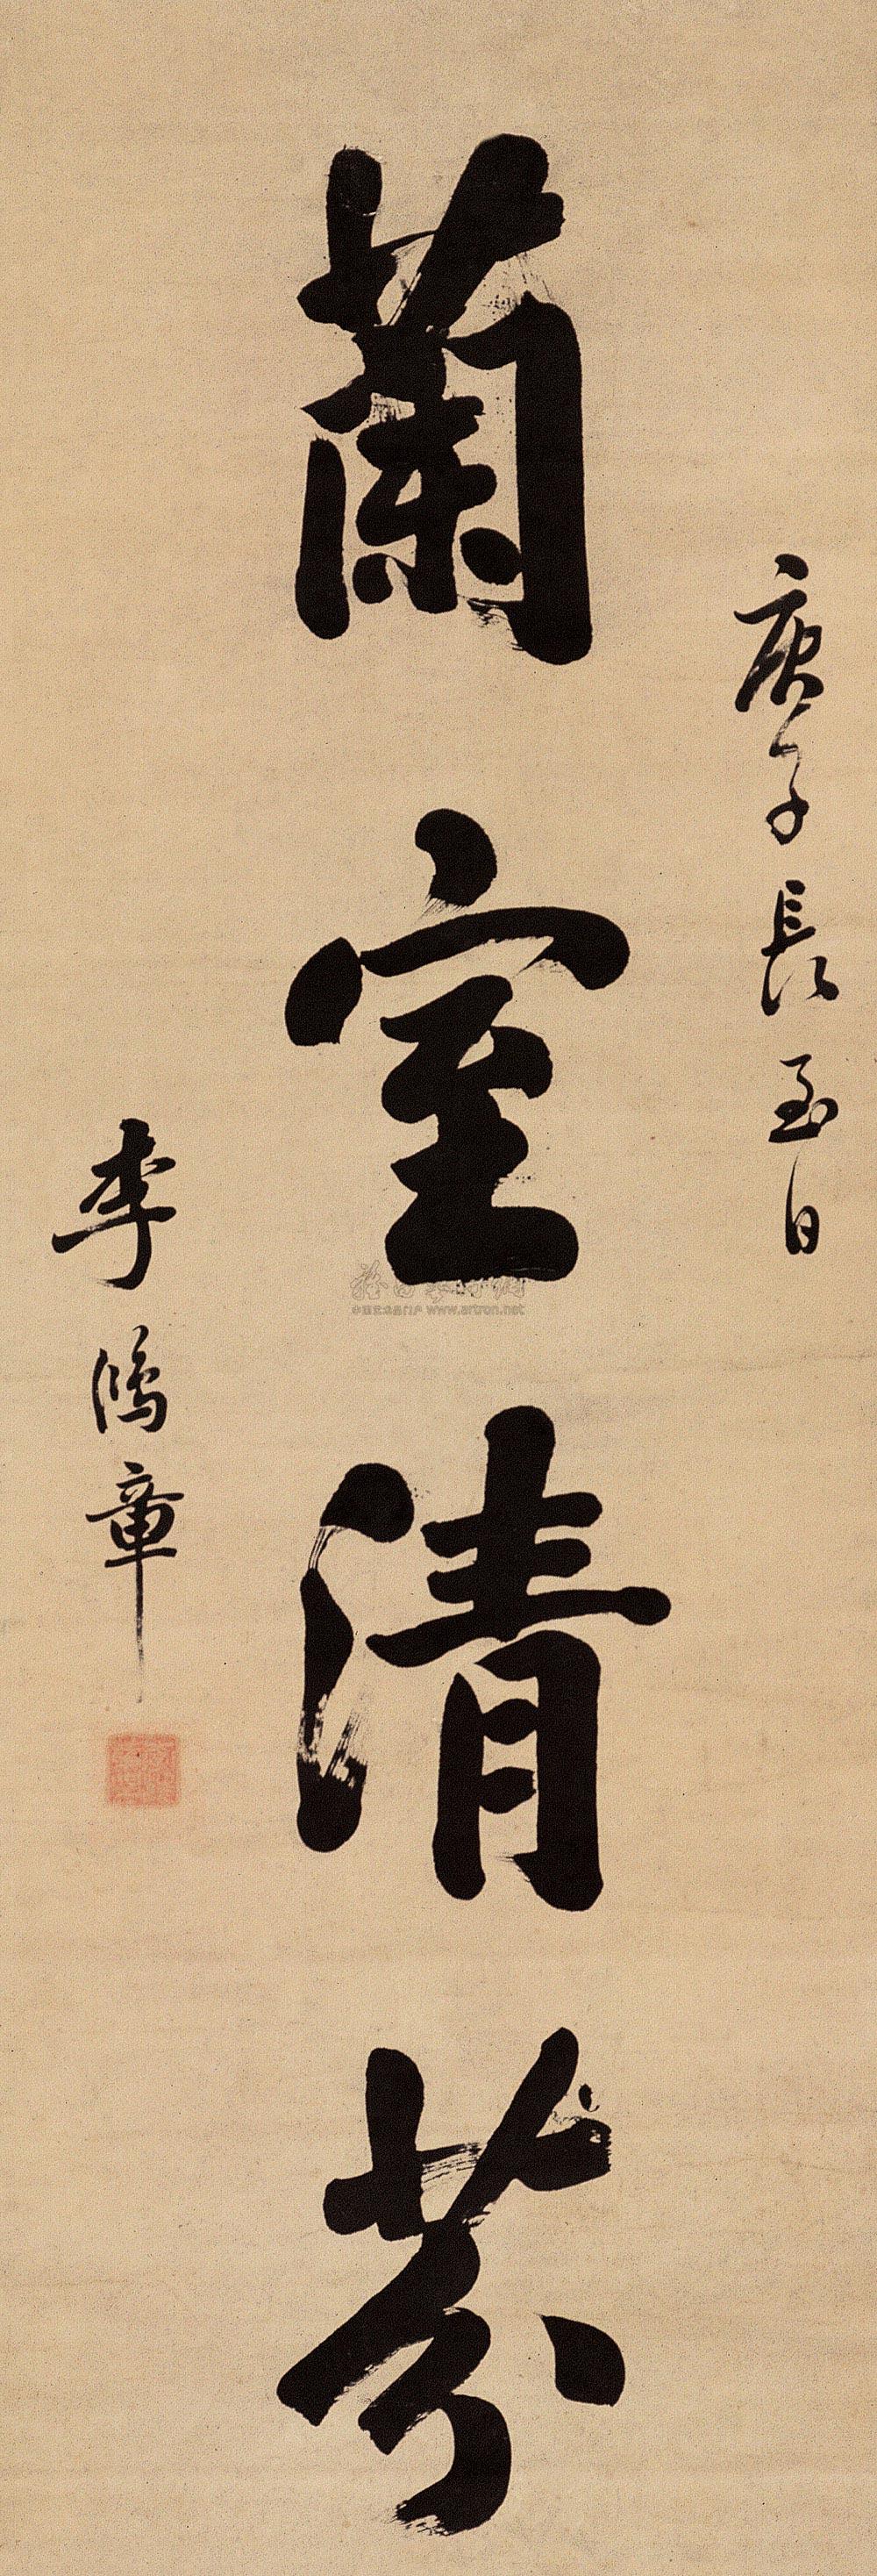 庚子長至日
蘭室清芬
李鴻章
www.artron.net